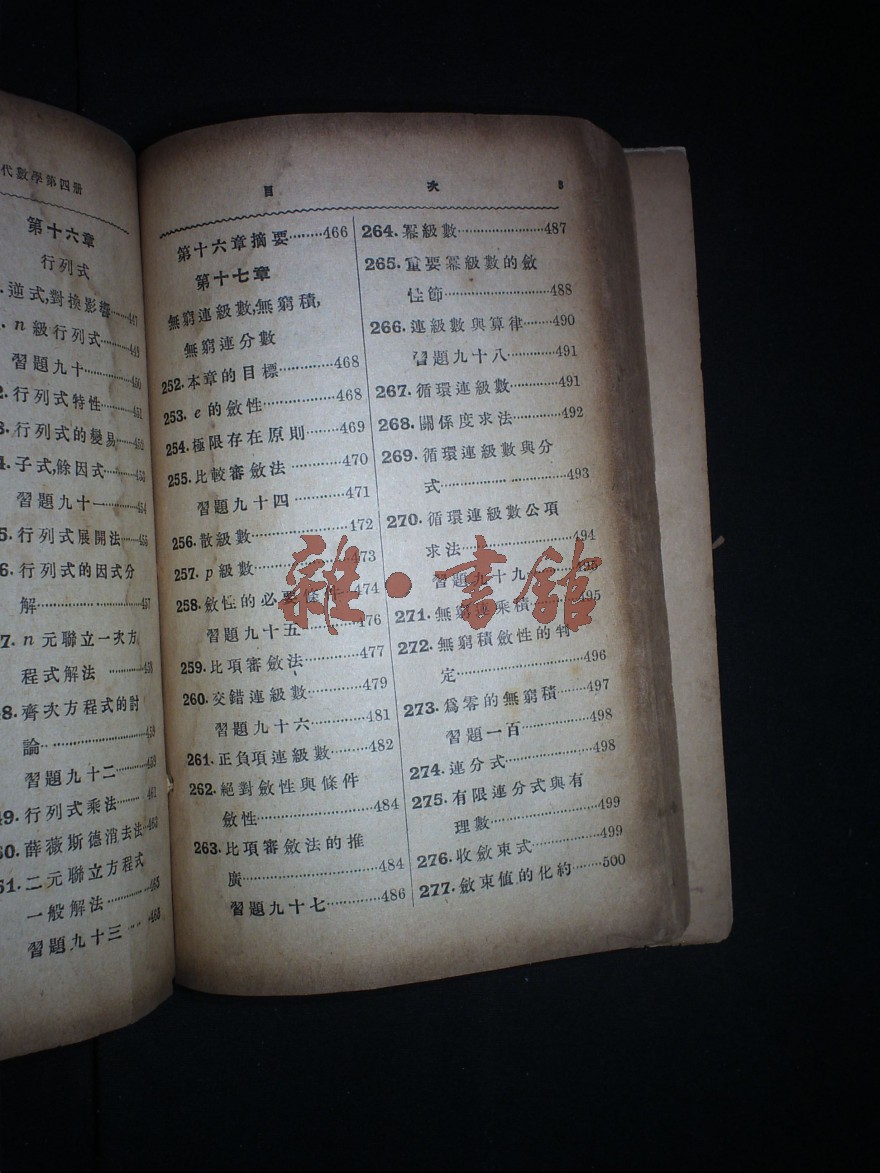 代數學第四册
第十六章
行列式
逆式,對換影響……447
n級行列式……449
習題九十……450
2.行列式特性……451
3.行列式的變易……452
4.子式,餘因式……453
習題九十一……454
5.行列式展開法……456
6.行列式的因式分
解……457
7.n元聯立一次方
程式解法……458
8.齊次方程式的討
論……459
習題九十二……459
49.行列式乘法……461
50.薛薇斯德消去法……463
51.二元聯立方程式
一般解法……465
習題九十三……465
目次
3
第十六章摘要……466
第十七章
無窮連級數,無窮積,
無窮連分數
252.本章的目標……468
253.e的斂性……468
254.極限存在原則……469
255.比較審斂法……470
習題九十四……471
256.散級數……472
257.p級數……473
258.斂性的必要條件……474
習題九十五……476
259.比項審斂法……477
260.交錯連級數……479
習題九十六……481
261.正負項連級數……482
262.絕對斂性與條件
斂性……484
263.比項審斂法的推
廣……484
習題九十七……486
264.冪級數……487
265.重要冪級數的斂
性節……488
266.連級數與算律……490
習題九十八……491
267.循環連級數……491
268.關係度求法……492
269.循環連級數與分
式……493
270.循環連級數公項
求法……494
習題九十九……495
271.無窮連乘積……495
272.無窮積斂性的判
定……496
273.爲零的無窮積……497
習題一百……498
274.連分式……498
275.有限連分式與有
理數……499
276.收斂束式……499
277.斂束值的化約……500
雜·書館